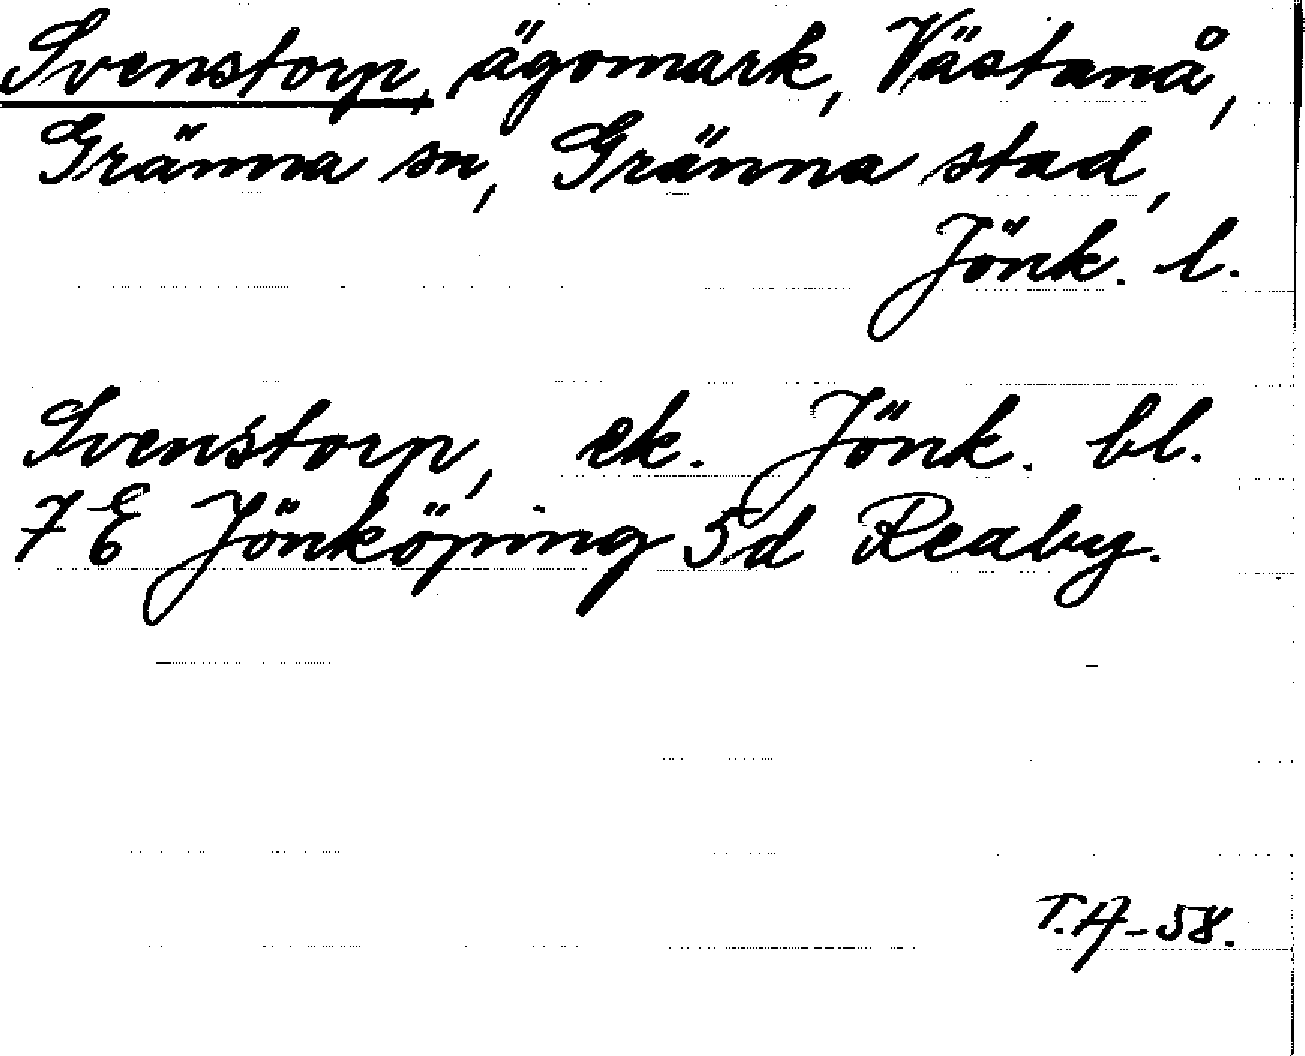 Svenstorp, ägomark, Västanå,
Gränna sn, Gränna stad,
Jönk. l.
Svenstorp, ek. Jönk. bl.
7 E Jönköping 5d Reaby.
T.A-58.